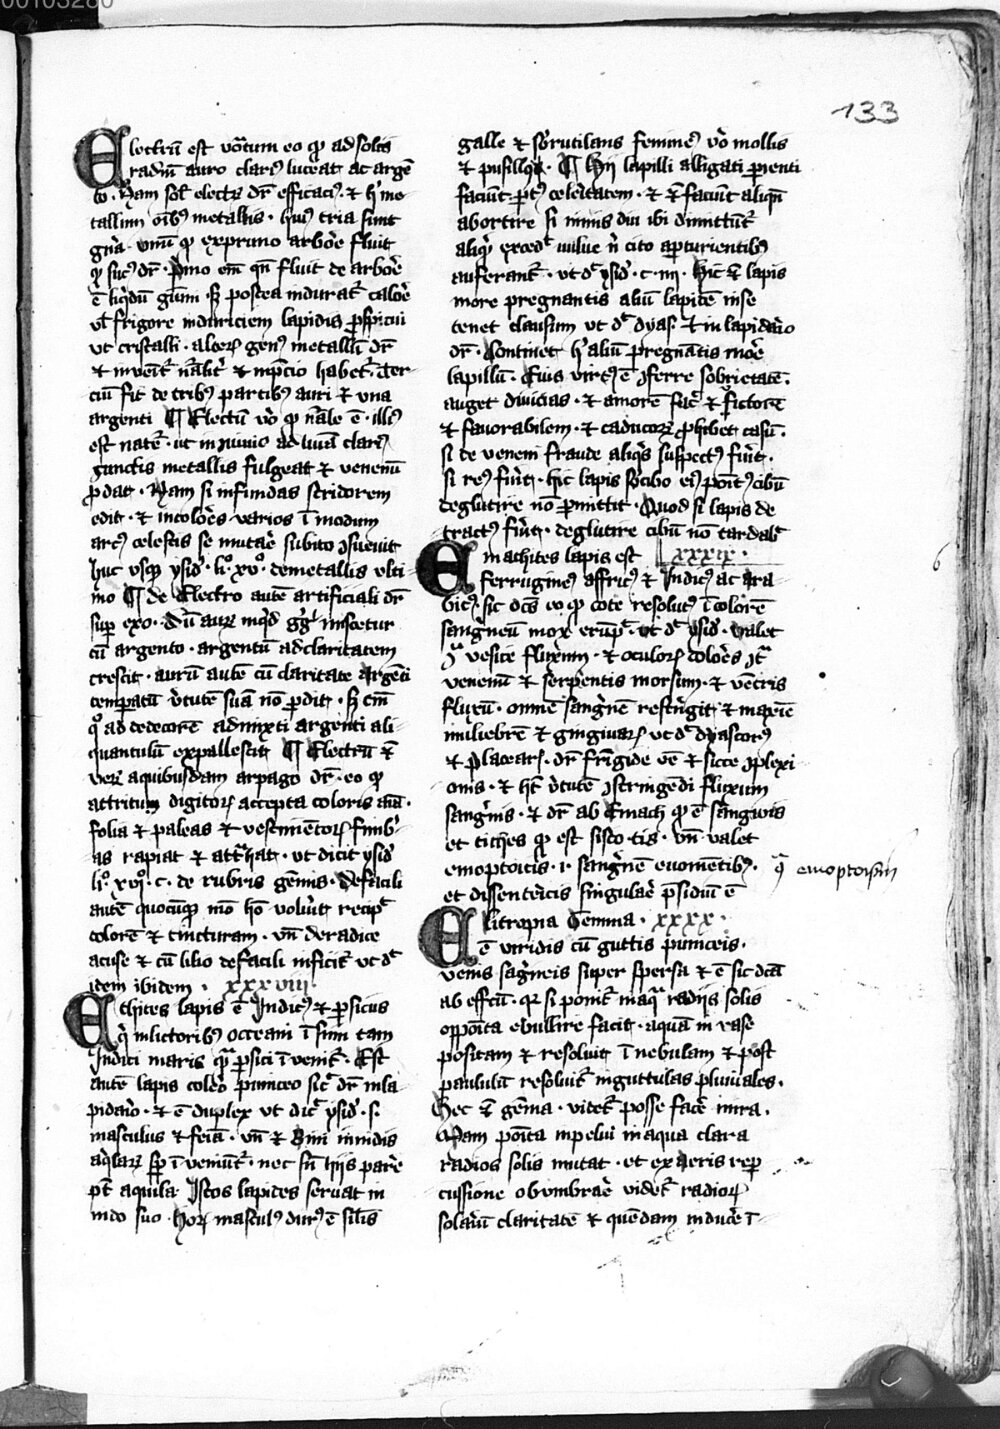 133
Electrū est vōtum eo qͻ ad solis
radiū auro clariꝰ luceat ac argē
to. Nam sol electꝝ dr̄ efficaciꝰ. et h' me
tallinū oībꝫ metallis. huiꝰ tria sunt
gn̄a. vnū qͻ ex pruno arbore fluit
qͻ sucꝰ dr̄. Pͥmo em̄ qn̄ fluit de arbore
ē liqͥdū gūmi. sꝫ postea indurat' calore
vl' frigore in duriciem lapidis ꝑspicui
vt cristalli. alteꝝ genꝰ metallū dr̄
et inuenit' nālit' et in pͥcio habet'. Ter
ciū fit de tribꝫ partibꝫ auri et vna
argenti ¶ Electrū vͦ qͻ nāle ē. illiꝰ
est natē. ut in nuuio ad lumīa clariꝰ
cunctis metallis fulgeat et venenū
ꝓdat. Nam si infundas stridorem
edit. et in colores varios ī modum
arcꝰ celestis se mutare subito ꝯsueuit
huc vsqꝫ ysid'. liº. xvº. de metallis vlti
mo ¶ de Electro autē artificiali dr̄
sup exo. Dū auꝝ inqͥd gͥgͬ miscetur
cū argento. argentū ad claritatem
crescit. aurū autē cū claritate argēti
temꝑatū v̄tutē suā nō ꝑdit. sꝫ em̄
qͦ ad dedecorē admixti argenti ali-
quantulū expallescit ¶ Electrū ē
veꝝ a quibusdam arpago dr̄. eo qͻ
attritum digitoꝝ accepta caloris aīa.
folia et paleas et vestimētoꝝ fimbͥ
as rapiat et att'hat. vt dicit ysid'
liº. xvjº. c. de rubris gēmis. De facili
autē quocūqꝫ mō hō volu'it recipͭ
colorē et tincturam. vn̄ de radice
acuse et cū lilio de facili inficit' vt dͭ
idem ibidem. xxxviii.
Echites lapis ē Indicꝰ et ꝑsicus
qͥ in lictoribꝫ occeani ī sinu tam
Indici maris qͣ ꝑsici īvenit'. Est
autē lapis colore puniceo sicͭ dr̄ in la
pidario. et ē duplex vt dicͭ ysid'. s.
masculus et feīa. vn̄ et bini in nidis
aqͥlaꝝ sꝑ īveniūt'. nec sn̄ hijs parere
pͭ aquila. Istos lapides seruat in
nido suo. hoꝝ masculꝰ durꝰ ē silis
galle et s'rutilans femineꝰ vͦ mollis
et pusillꝰ. ¶ Hij lapilli alligati ꝑienti
faciūt ꝑtꝰ celeritatem. et ē faciūt aliqn̄
abortire si nimis diu ibi dimittūt'
aliqͥ exced' vulue n̄ cito aꝑturientibꝫ
auferant'. vt dͭ ysid'. c. iiij. Hic ē lapis
more pregnantis aliū lapidē in se
tenet clausum vt dͭ dyas. Et in lapidario
dr̄. Continet h' aliū pregnātis more
lapillū. Cuiꝰ virtꝰ ē ꝯferre sobrietatē.
auget diuicias. et amorē facͭ et victorē
et fauorabilem. et caducoꝝ ꝓhibet casū.
si de veneni fraude aliqͥs suspectꝰ fu'it.
si reꝰ fu'it. hic lapis s' cibo eiꝰ poīt' cibū
deglutire nō ꝑmittit. Quod si lapis de
tractꝰ fu'it. deglutire cibū nō tardabͭ
Emachites lapis est xxxix.
ferrugineꝰ affricꝰ et Indicꝰ ac ara
bicꝰ. sic dcs̄ eo qͻ cote resolutꝰ ī colorē
sangͥneū mox erūpͭ. vt dͭ ysid'. valet
ꝯͣ vesice fluxum. et oculoꝝ dolores ꝯͭͣ
venenū et serpentis morsum. et vētris
fluxū. omnē sangͥnē restrīgit et maxīe
muliebrē et gingiuaꝝ vt dͭ dyascorꝰ
et placearꝰ. dr̄ frigide ēē et sicce ꝯplexi
onis. et hꝫ v̄tutē ꝯstringēdi fluxum
sangͥnis. et dr̄ ab Emach qͻ ē sangwis
et tithes qͻ est sisto tis. vn̄ valet
emoptoicis. i. sangͥnē euomētibꝫ.
et dissentericis singulare p̄sidiū ē
Elitropia Gemma. xxxx.
ē viridis cū guttis puniceis.
venis sāgͥneis super spersa et ē sic dcā
ab effcū. qꝛ si ponit' in aqͣ radijs solis
oppoīta ebullire facit. aquā in vase
positam et resoluit ī nebulam et post
paululū resoluit' in guttulas pluuiales.
Hec ē gēma. videt' posse facͤ mira.
Nam poīta in pelui in aqua clara
radios solis mutat. et ex aeris reꝑ
cussione obumbrare videt' radioꝝ
solarū claritatē et quēdam inducͤ ī-
emoptoisim